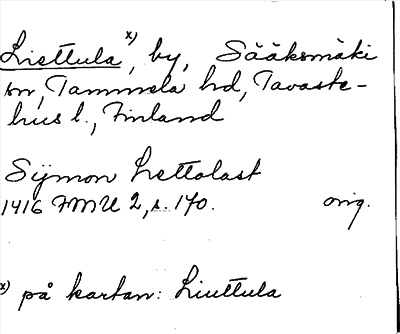 Liettula x), by, Sääksmäki
sn, Tammela hd, Tavaste-
hus l., Finland
Sÿmon Lettolast
1416 FMU 2, s. 170. orig.
x) på kartan: Liuttula